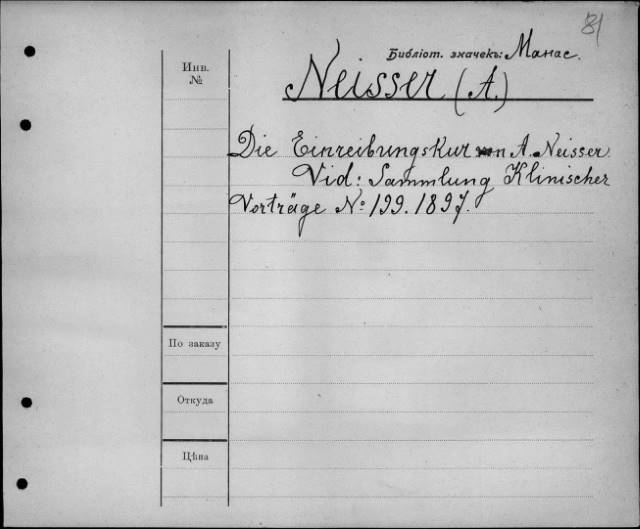 81
Библіот. значекъ: Манас.
Инв.
№
Neisser (A.)
Die Einreibungskur von A. Neisser
Vid: Sammlung Klinischer
Vorträge № 199. 1897.
По заказу
Откуда
Цѣна